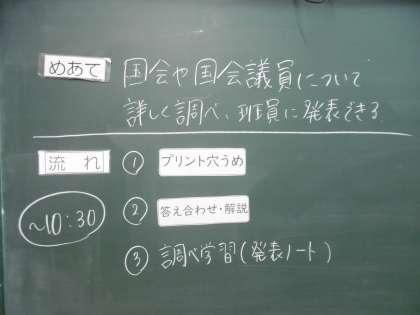 めあて 国会や国会議員について
詳しく調べ、班員に発表できる
流れ ① プリント穴うめ
~10:30 ② 答え合わせ・解説
③ 調べ学習(発表ノート)